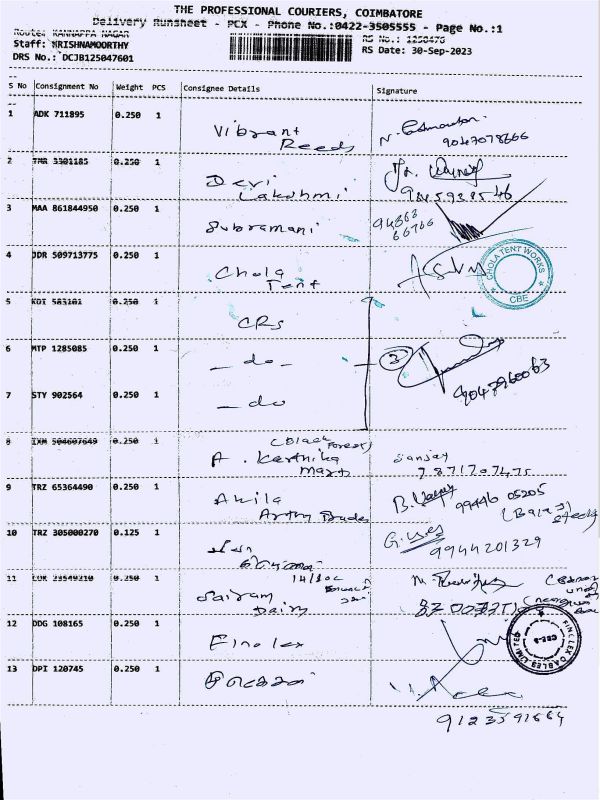 THE PROFESSIONAL COURIERS, COIMBATORE
Delivery Runsheet - PCX - Phone No.:0422-3505555 - Page No.:1
Route: KANNAPPA NAGAR
Staff: KRISHNAMOORTHY
RS Date: 30-Sep-2023
DRS No.: DCJB125047601
S No Consignment No Weight PCS Consignee Details Signature
1 ADK 711895 0.250 1 Vibrant
Reeds
9047078666
2 TMR 3301185 0.250 1 Devi
Lakshmi
3 MAA 861844950 0.250 1 Subramani
4 JDR 509713775 0.250 1 Chola
Tent
CHOLA TENT WORKS
CBE
5 KDI 583101 0.250 1 CRS
6 MTP 1285085 0.250 1 — do — 3
7 STY 902564 0.250 1 — do
9047960063
8 IXM 504607649 0.250 1 (Black Forest)
A. Karthika
Mart
Sanjay
7871707475
9 TRZ 65364490 0.250 1 Akila
Arthy Trades
99446 05205
10 TRZ 305000270 0.125 1
9944201329
11 0.250 1 Sairam
Dairy
12 DDG 108165 0.250 1 Finolex
FINOLEX CABLES LIMITED
13 DPI 120745 0.250 1
9123591664